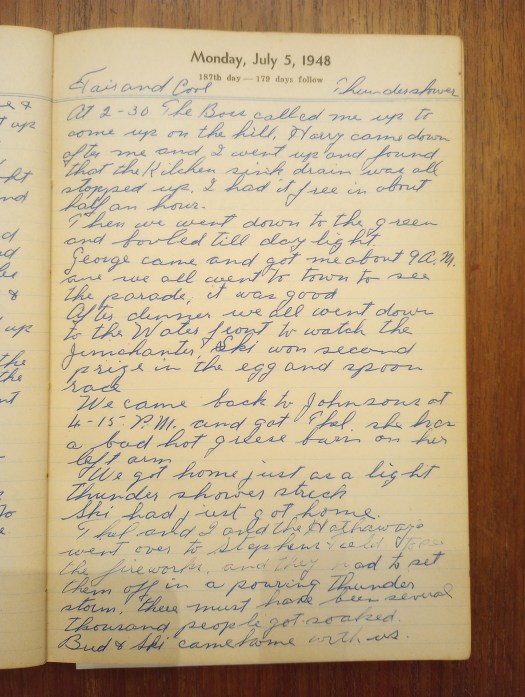 Monday, July 5, 1948
187th day — 179 days follow
Fair and Cool Thundershower
At 2-30 The Boss called me up to
come up on the hill, Harry came down
after me and I went up and found
that the Kitchen sink drain was all
stopped up. I had it free in about
half an hour.
Then we went down to the green
and bowled till day light.
George came and got me about 9 A.M.
and we all went to town to see
the parade, it was good
After dinner we all went down
to the Water front to watch the
Ski won second
prize in the egg and spoon
race
We came back to Johnsons at
4-15 P.M. and got Thel. she has
a bad hot griese burn on her
left arm
We got home just as a light
thunder shower struck
Ski had just got home.
Thel and I and the Hathaways
went over to Stephens Field to see
the fireworks, and they had to set
them off in a pouring thunder
storm, there must have been several
thousand people got soaked.
Bud & Ski came home with us.